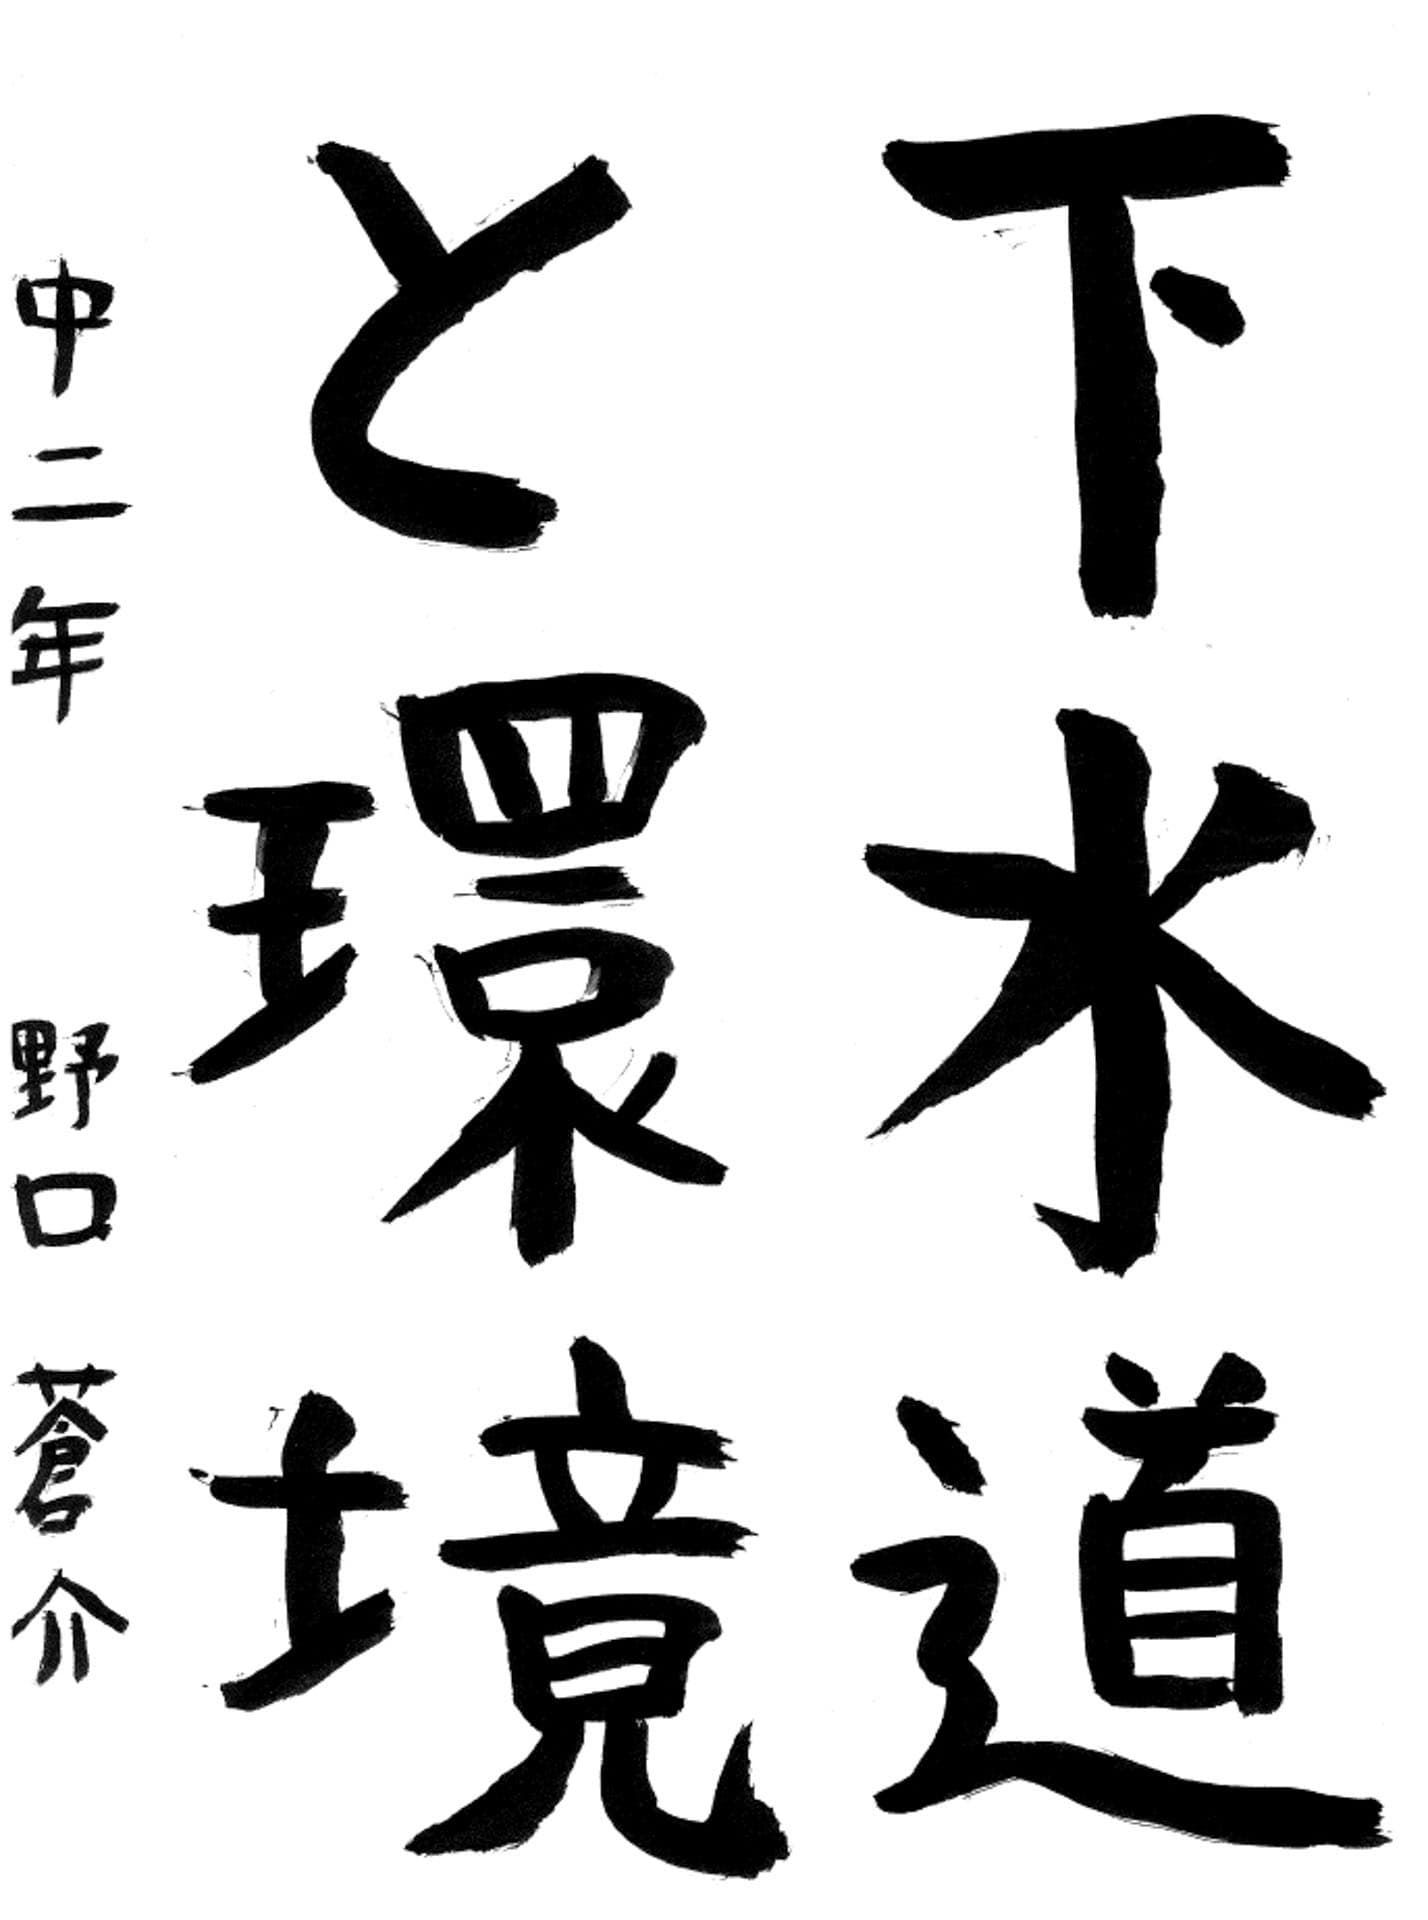 下水道
と環境
中二年 野口蒼介